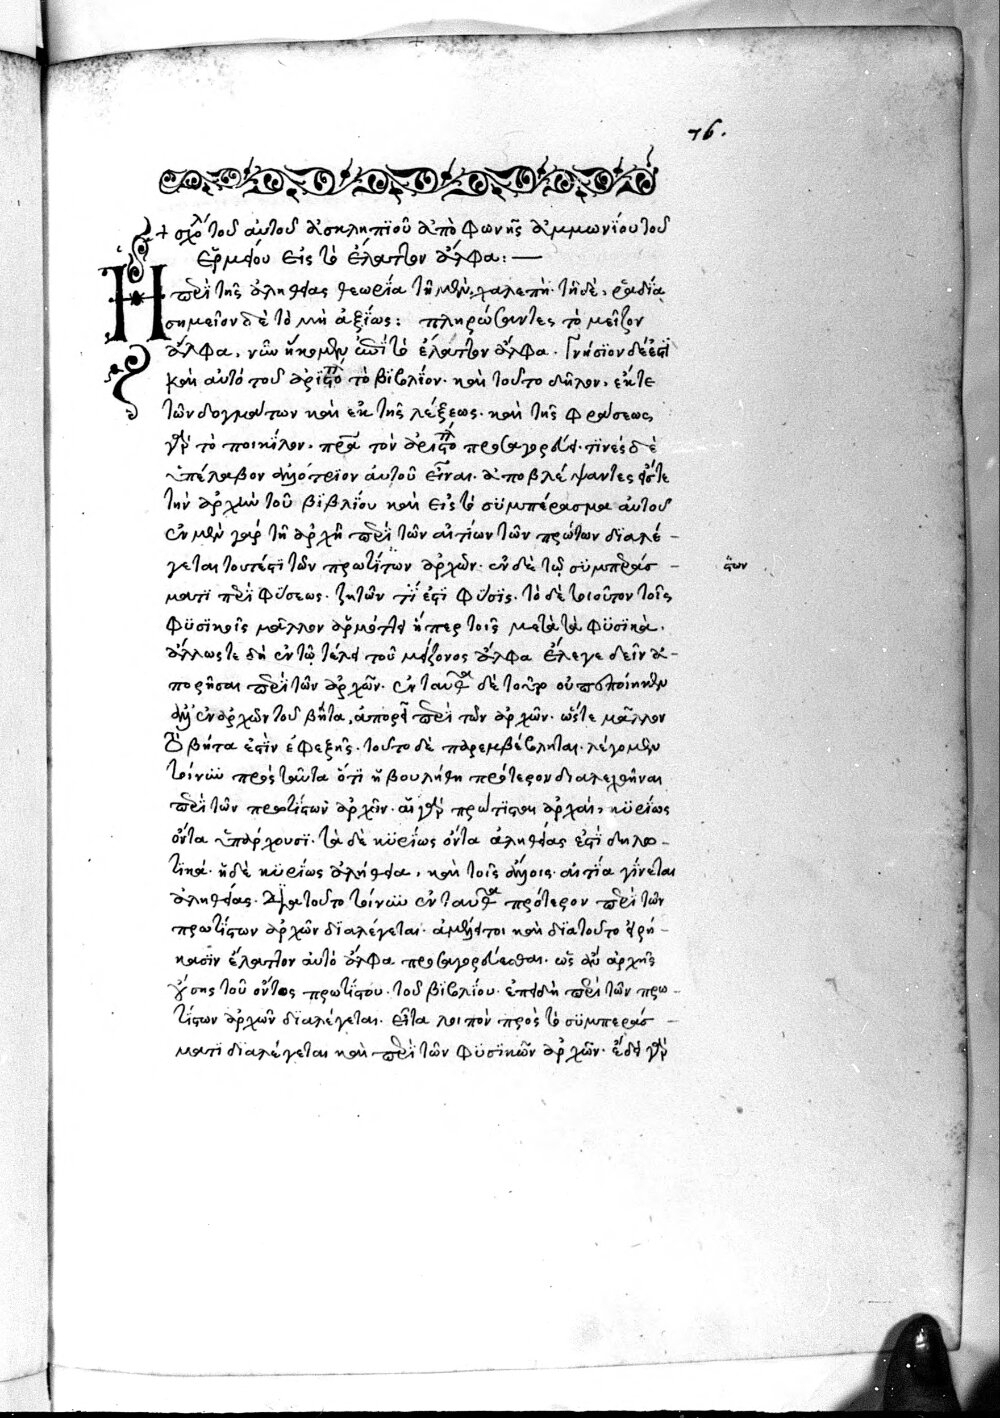 76.
+ σχο τοῦ αὐτοῦ ἀσκληπϊοῦ ἀπὸ φωνῆς ἀμμωνίου τοῦ
ἑρμείου εἰς τὸ ἔλαττον ἄλφα: —
Ἡ περὶ τῆς ἀληθείας θεωρία τῆ μὲν, χαλεπὴ· τῆ δὲ, ῥαδία
σημεῖον δὲ τὸ μὴ ἀξίως: πληρώσαντες τὸ μεῖζον
ἄλφα, νῦν ἥκομεν ἐπὶ τὸ ἔλαττον ἄλφα. Γνήσϊον δέ ἐστι
καὶ αὐτὸ τοῦ ἀριστο τὸ βιβλίον· καὶ τοῦτο δῆλον, ἔκ τε
τῶν δογμάτων καὶ ἐκ τῆς λέξεως· καὶ τῆς φράσεως
γὰρ τὸ ποικίλον· παρὰ τὸν ἀριστο προσαγορεύει· τινὲς δὲ
ὑπέλαβον ἀλλότριον αὐτοῦ εἶναι· ἀποβλέψαντες εἴς τε
τὴν ἀρχὴν τοῦ βϊβλίου καὶ εἰς τὸ συμπέρασμα αὐτοῦ
ἐν μὲν γὰρ τῆ ἀρχῆ περὶ τῶν αἰτίων τῶν πρώτων διαλέ-
γεται τουτέστι τῶν πρωτίστων ἀρχῶν· ἐν δὲ τῷ συμπεράσ-
στων
ματι περὶ φύσεως· ζητῶν τί ἐστι φύσις· τὸ δὲ τοιοῦτον τοῖς
φυσικοῖς μᾶλλον ἁρμόττει ἤπερ τοῖς μετὰ τὰ φυσικὰ.
ἄλλως τε δὴ ἐν τῷ τέλει τοῦ μείζονος ἄλφα ἔλεγε δεῖν ἀ-
πορῆσαι περὶ τῶν ἀρχῶν. ἐνταῦθα δὲ τοῦτο οὐ πεποίηκεν
ἀλλ' ἐν ἀρχῆ τοῦ βῆτα, ἀπορεῖ περὶ τῶν ἀρχῶν· ὥστε μᾶλλον
τὸ βῆτα ἐστὶν ἐφεξῆς· τοῦτο δὲ παρεμβέβληται. λέγομεν
τοίνυν πρὸς ταῦτα ὅτι ἠβουλήθη πρότερον διαλεχθῆναι
περὶ τῶν πρωτίστων ἀρχῶν· αἱ γὰρ πρώτισται ἀρχαὶ, κυρίως
ὄντα ὑπάρχουσι· τὰ δὲ κυρίως ὄντα ἀληθείας ἐστὶ δηλω-
τικά· ἡ δὲ κυρίως ἀλήθεια, καὶ τοῖς ἄλλοις αἰτία γίνεται
ἀληθείας. Διὰ τοῦτο τοίνυν ἐνταῦθα πρότερον περὶ τῶν
πρωτίστων ἀρχῶν διαλέγεται. ἀμέλει τοι καὶ διὰ τοῦτο εἰρή-
κασιν ἔλαττον αὐτὸ ἄλφα προσαγορεύεσθαι. ὡς ἂν ἀρχῆς
οὔσης τοῦ ὄντος πρωτίστου. τοῦ βϊβλίου. ἐπειδὴ περὶ τῶν πρω-
τίστων ἀρχῶν διαλέγεται. εἶτα λοιπὸν πρὸς τὸ συμπεράσ-
ματι διαλέγεται καὶ περὶ τῶν φυσικῶν ἀρχῶν. ἔδει γὰρ